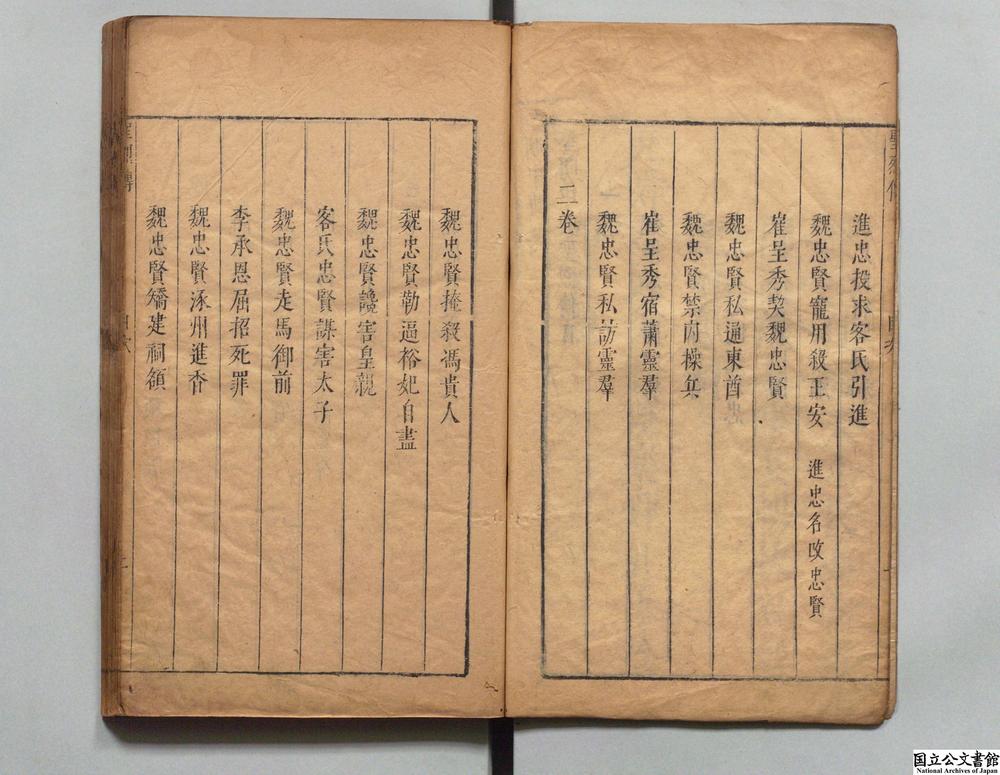 進忠投求客氏引進
魏忠賢寵用殺王安 進忠名改忠賢
崔呈秀契魏忠賢
魏忠賢私通東酋
魏忠賢禁內操兵
崔呈秀宿蕭靈羣
魏忠賢私訪靈羣
二卷
魏忠賢掩殺馮貴人
魏忠賢勒逼裕妃自盡
魏忠賢讒害皇親
客氏忠賢謀害太子
魏忠賢走馬御前
李承恩屈招死罪
魏忠賢涿州進香
魏忠賢矯建祠額
国立公文書館
National Archives of Japan